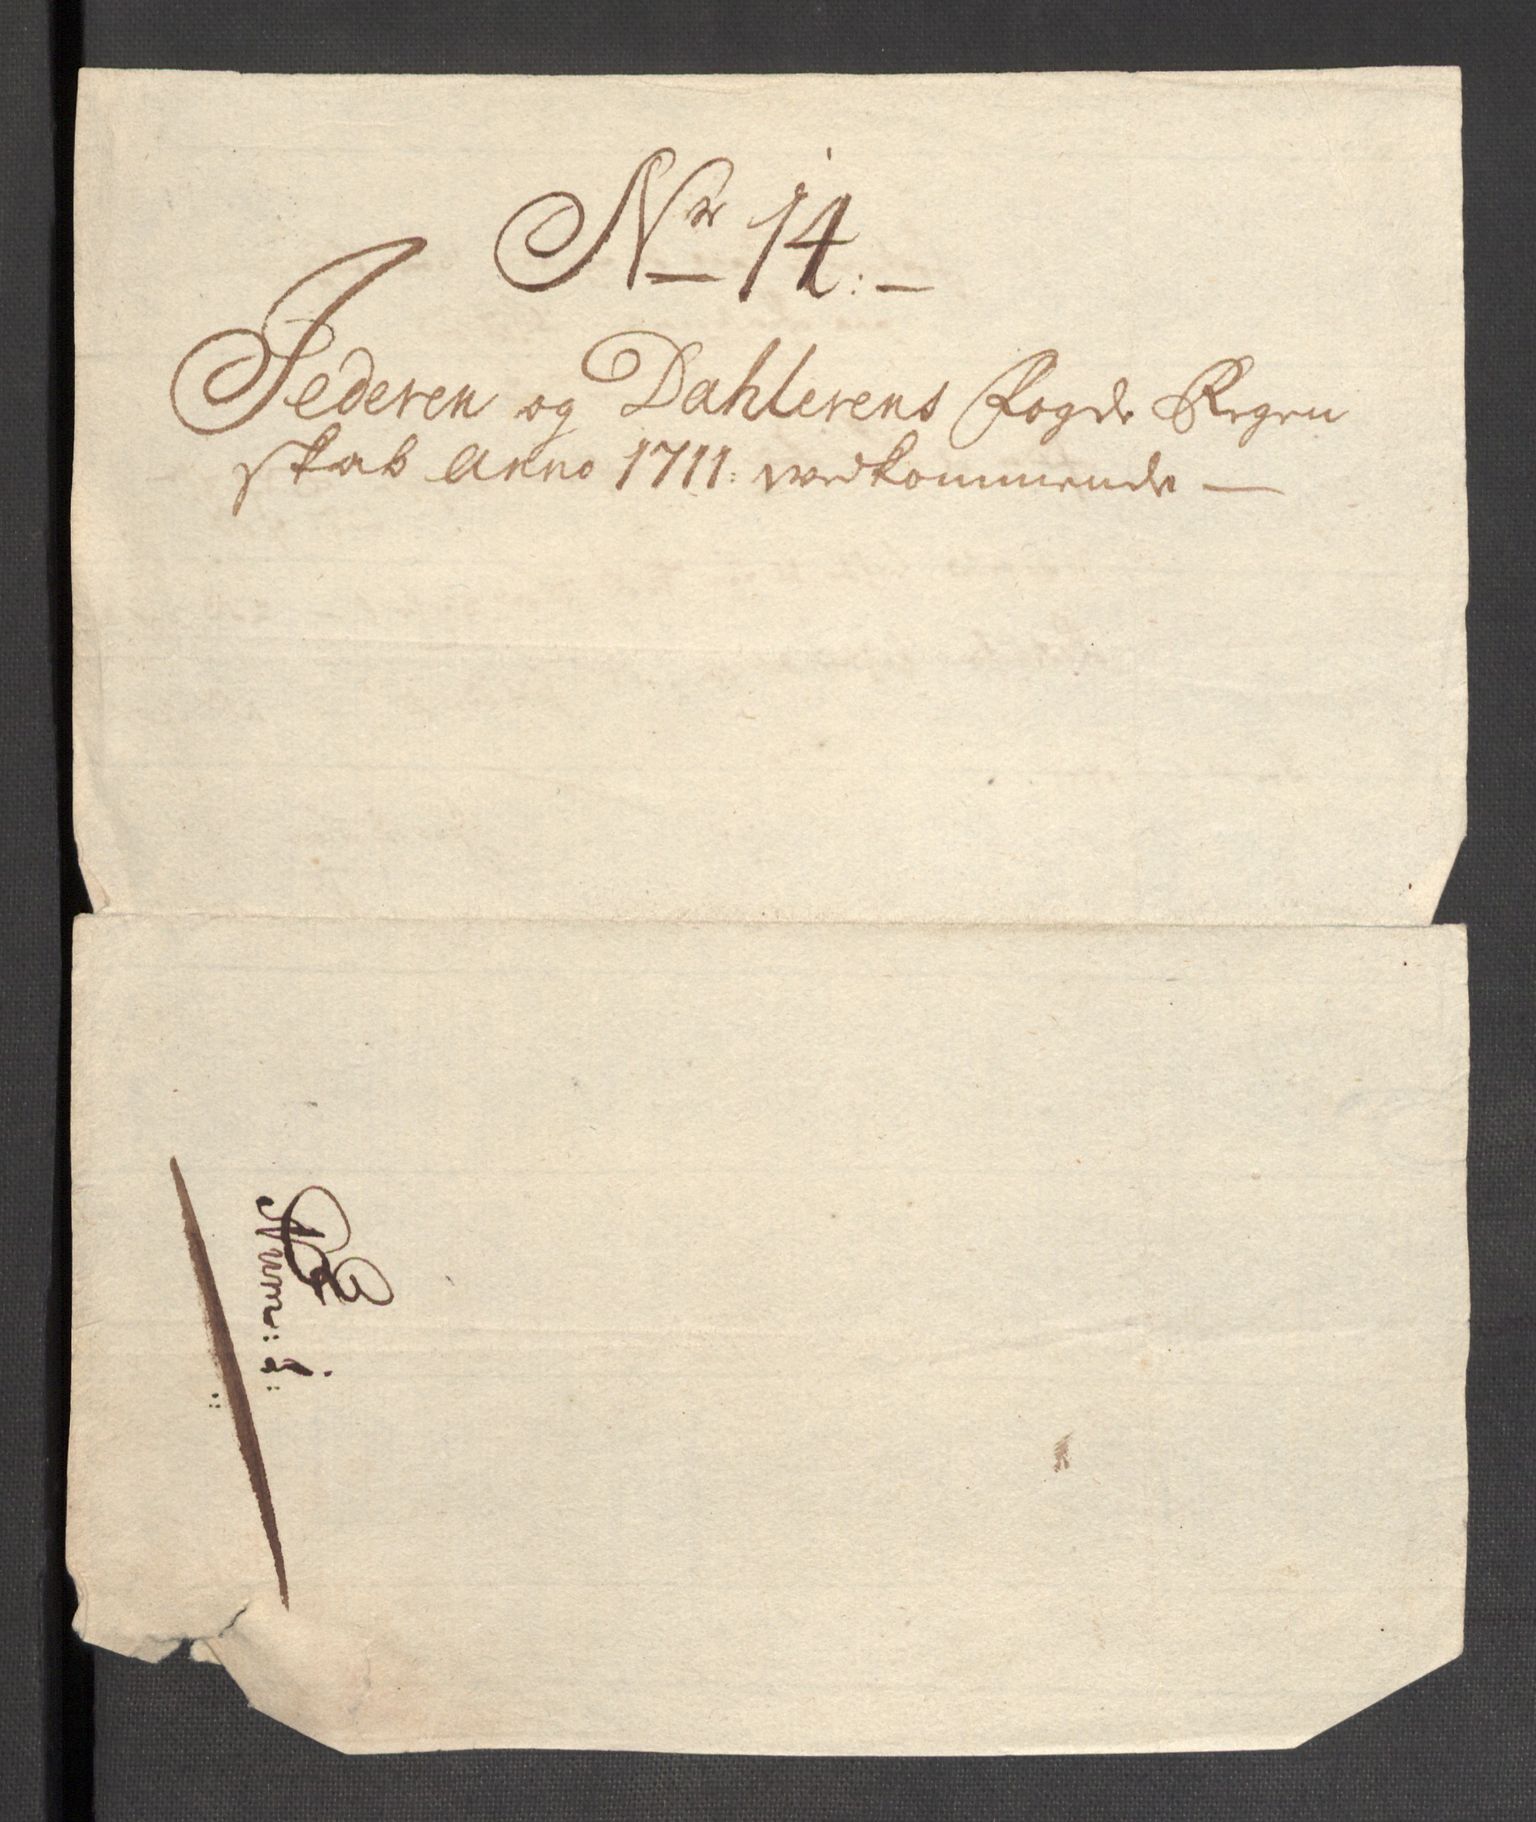 Nr 14:—
Jederen og Dahlerens Fogde Regen
skab Anno 1711: vedkommende —
Num: 1: